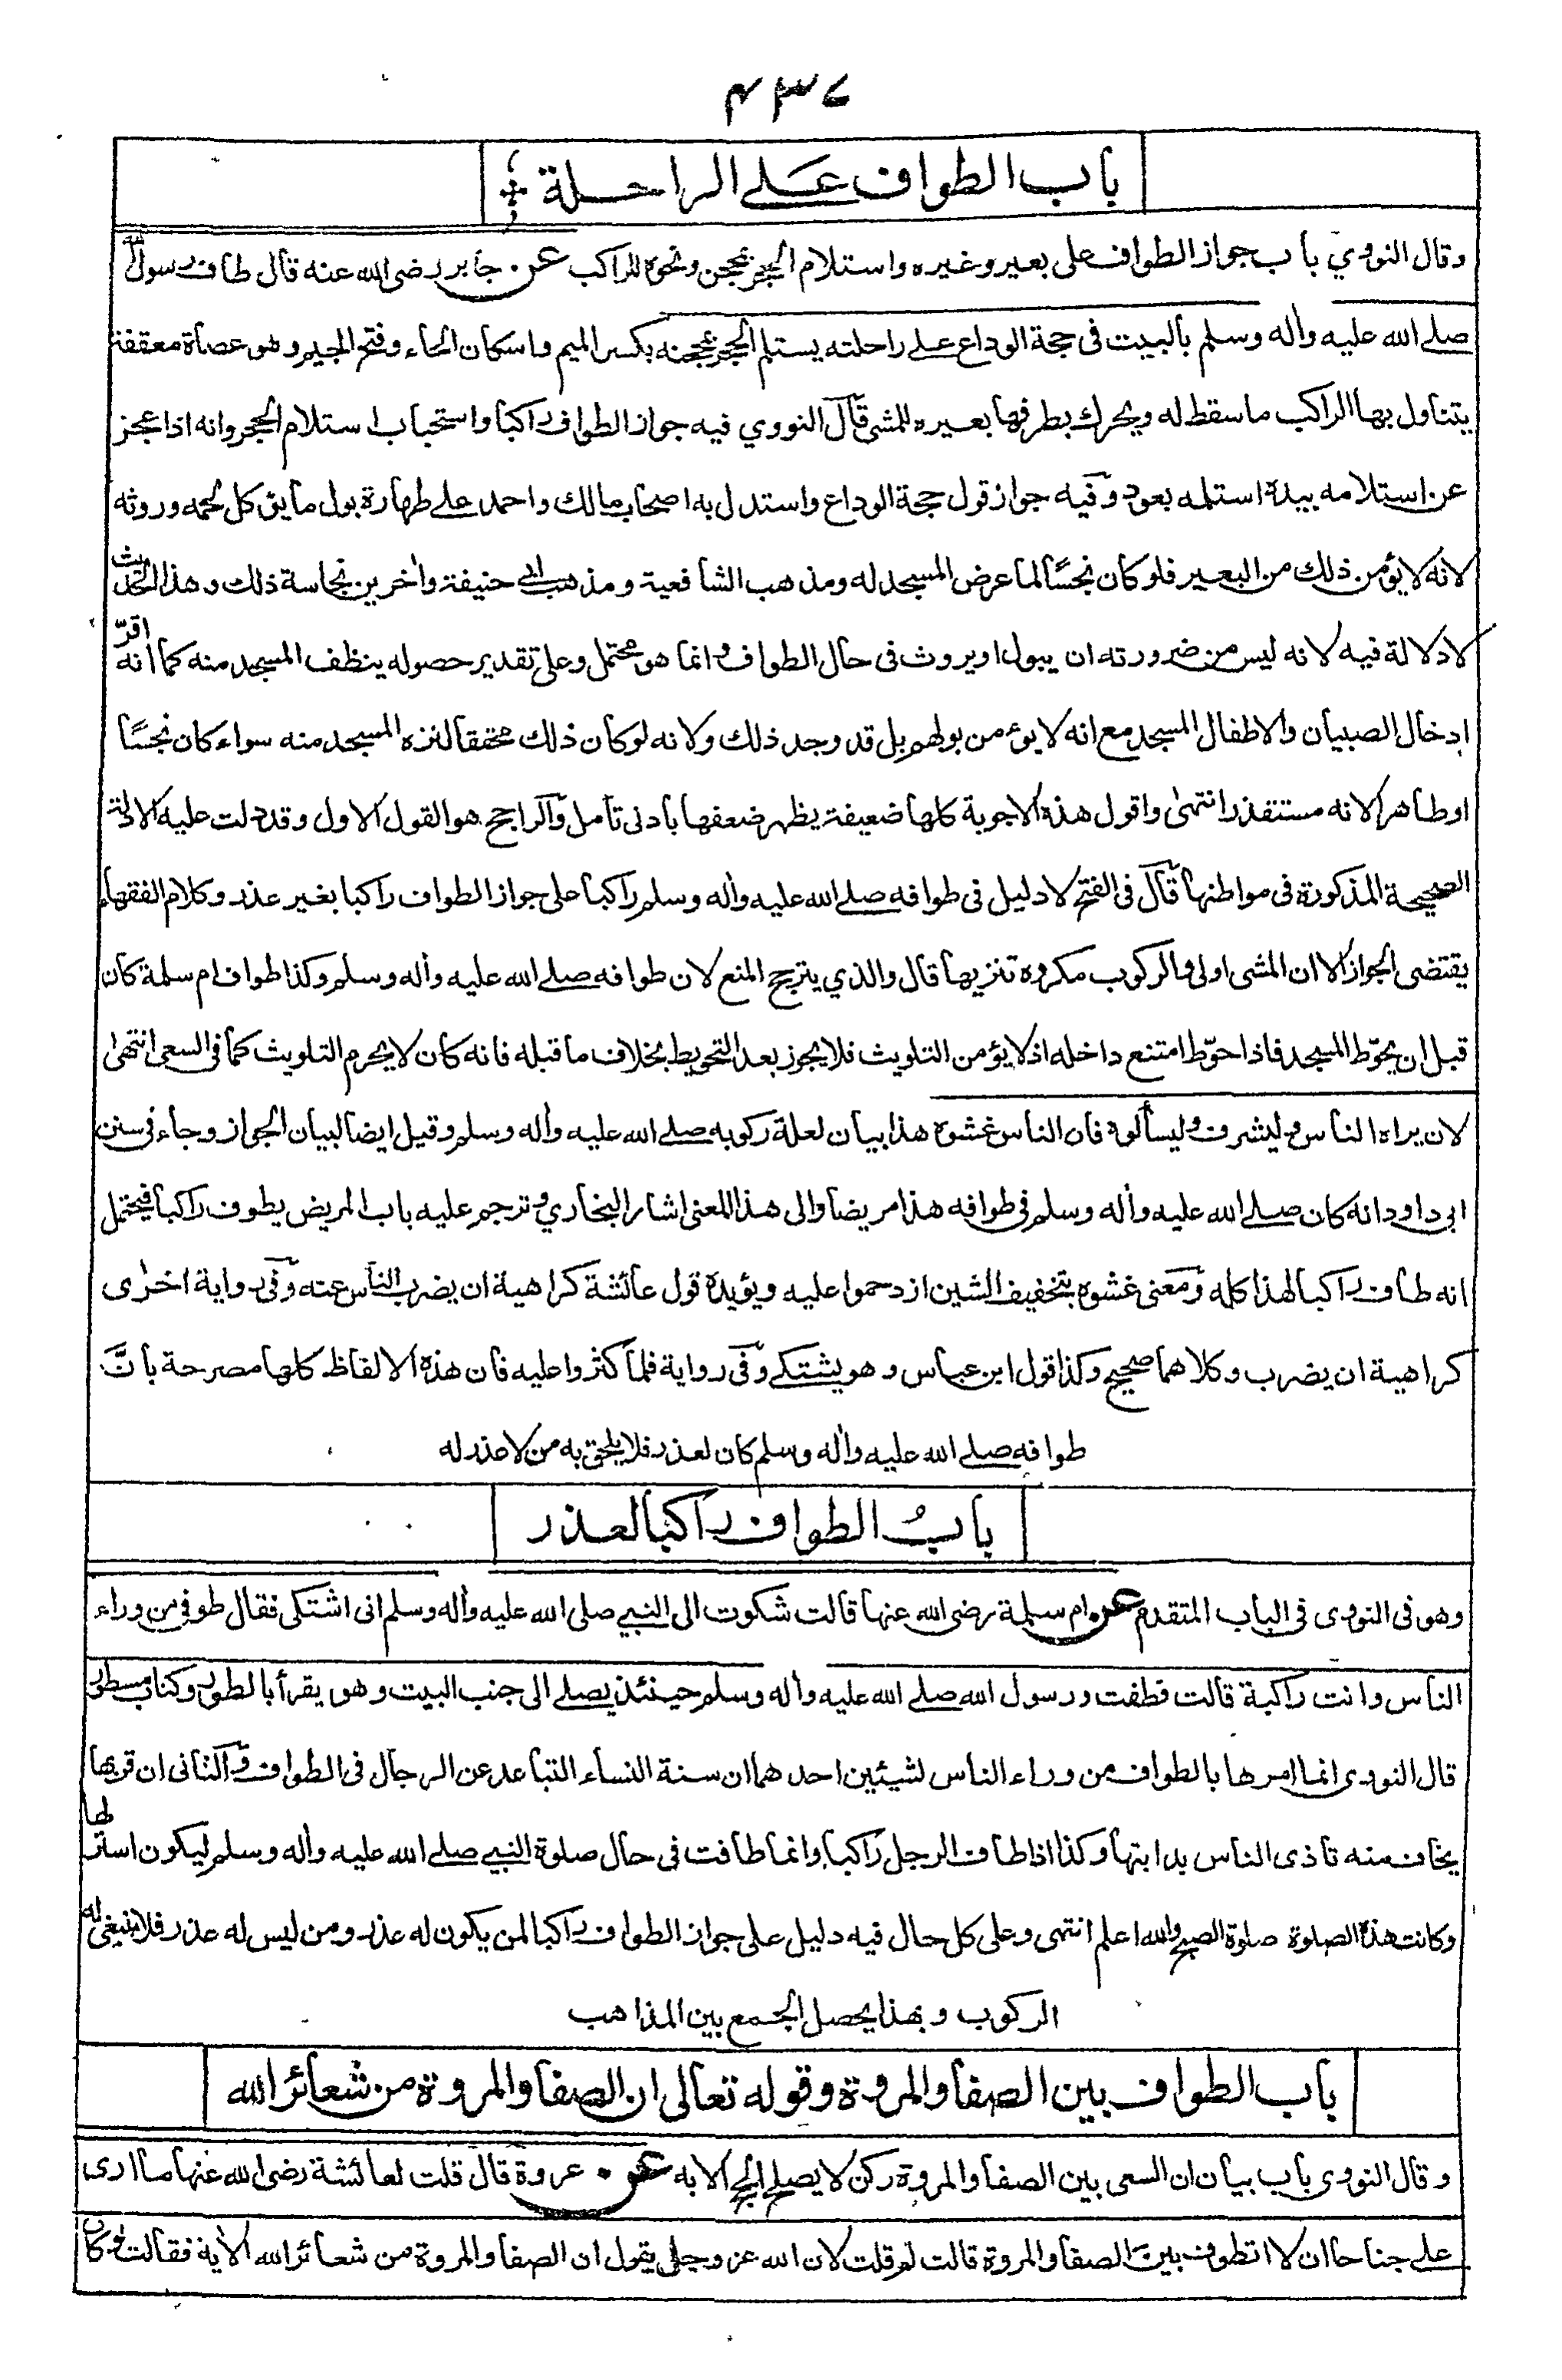 ٤٣٧
باب الطواف على الراحلة
وقال النووي باب جواز الطواف على بعير وغيره واستلام الحجر بمحجن ونحوه للراكب عن جابر رضى الله عنه قال طاف رسول الله
صلے الله عليه واٰله وسلم بالبيت فى حجة الوداع علے راحلته يستلم الحجر بمحجنه بكسر الميم واسكان الحاء وفتح الجيم وهو عصاة معقفة
يتناول بها الراكب ما سقط له ويحرك بطرفها بعيره للمشى قال النووي فيه جواز الطواف راكبا واستحباب استلام الحجر وانه اذا عجز
عن استلامه بيده استلمه بعود وفيه جواز قول حجة الوداع واستدل به اصحاب مالك واحمد علے طهارة بول ما يؤكل لحمه وروثه
لانه لا يؤمن ذلك من البعير فلو كان نجسًا لما عرض المسجد له ومذهب الشافعية ومذهب ابى حنيفة واٰخرين نجاسة ذلك وهذا الحديث
لا دلالة فيه لانه ليس من ضرورته ان يبول او يروث فى حال الطواف وانما هو محتمل وعلى تقدير حصوله ينظف المسجد منه كما انه اقرّ
ادخال الصبيان والاطفال المسجد مع انه لا يؤمن بولهم بل قد وجد ذلك ولانه لو كان ذلك محققا لنزه المسجد منه سواء كان نجسًا
او طاهرا لانه مستقذر انتهىٰ واقول هذه الاجوبة كلها ضعيفة يظهر ضعفها بادنى تأمل والراجح هو القول الاول وقد دلت عليه الادلة
الصحيحة المذكورة فى مواطنها قال فى الفتح لا دليل فى طوافه صلے الله عليه واٰله وسلم راكبا على جواز الطواف راكبا بغير عذر وكلام الفقهاء
يقتضى الجواز الا ان المشى اولى والركوب مكروه تنزيها قال والذي يترجح المنع لان طوافه صلے الله عليه واٰله وسلم وكذا طواف ام سلمة كان
قبل ان يحوّط المسجد فاذا حوّط امتنع داخله اذ لا يؤمن التلويث فلا يجوز بعد التحويط بخلاف ما قبله فانه كان لا يحرم التلويث كما فى السعى انتهىٰ
لان يراه الناس وليشرف وليسألوه فان الناس غشوه هذا بيان لعلة ركوبه صلے الله عليه واٰله وسلم وقيل ايضا لبيان الجواز وجاء فى سنن
ابى داود انه كان صلے الله عليه واٰله وسلم فى طوافه هذا مريضا والى هذا المعنى اشار البخاري وترجم عليه باب المريض يطوف راكبا فيحتمل
انه طاف راكبا لهذا كله ومعنى غشوه بتخفيف الشين ازدحموا عليه ويؤيده قول عائشة كراهية ان يضرب الناس عنه وفى رواية اخرٰى
كراهية ان يضرب وكلاهما صحيح وكذا قول ابن عباس وهو يشتكے وفى رواية فلما كثروا عليه فان هذه الالفاظ كلها مصرحة بانَّ
طوافه صلے الله عليه واٰله وسلم كان لعذر فلا يلحق به من لا عذر له
بابُ الطواف راكبا لعذر
وهو فى النووى فى الباب المتقدم عن ام سلمة رضى الله عنها قالت شكوت الى النبي صلى الله عليه واٰله وسلم انى اشتكى فقال طوفى من وراء
الناس وانت راكبة قالت فطفت ورسول الله صلے الله عليه واٰله وسلم حينئذ يصلے الى جنب البيت وهو يقرأ بالطور وكتاب مسطور
قال النووى انما امرها بالطواف من وراء الناس لشيئين احدهما ان سنة النساء التباعد عن الرجال فى الطواف والثانى ان قربها
يخاف منه تاذى الناس بدابتها وكذا اذا طاف الرجل راكبا وانما طافت فى حال صلوة النبي صلے الله عليه واٰله وسلم ليكون استر لها
وكانت هذه الصلوة صلوة الصبح والله اعلم انتهى وعلى كل حال فيه دليل على جواز الطواف راكبا لمن يكون له عذر ومن ليس له عذر فلا ينبغى له
الركوب وبهذا يحصل الجمع بين المذاهب
باب الطواف بين الصفا والمروة وقوله تعالى ان الصفا والمروة من شعائر الله
وقال النووى باب بيان ان السعى بين الصفا والمروة ركن لا يصلح الحج الا به عن عروة قال قلت لعائشة رضى الله عنها ما ارى
علے جناحا ان لا اتطوف بين الصفا والمروة قالت لم قلت لان الله عز وجل يقول ان الصفا والمروة من شعائر الله الاٰية فقالت لو كان